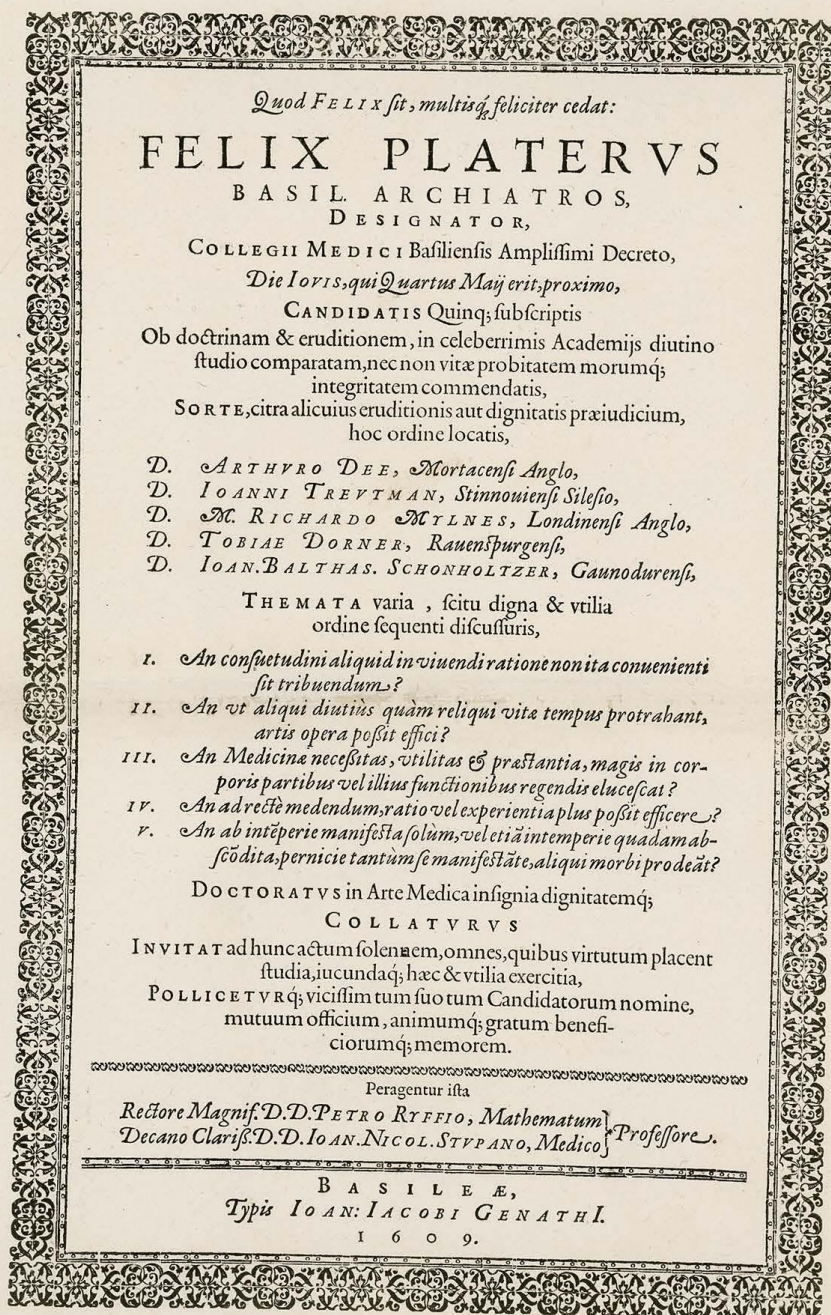 Quod FELIX ſit, multisq́; feliciter cedat:
FELIX PLATERVS
BASIL. ARCHIATROS,
DESIGNATOR,
COLLEGII MEDICI Baſilienſis Ampliſſimi Decreto,
Die IOVIS, qui Quartus Maij erit, proximo,
CANDIDATIS Quinq; ſubſcriptis
Ob doctrinam & eruditionem, in celeberrimis Academijs diutino
ſtudio comparatam, nec non vitæ probitatem morumq́;
integritatem commendatis,
SORTE, citra alicuius eruditionis aut dignitatis præiudicium,
hoc ordine locatis,
D. ARTHVRO DEE, Mortacenſi Anglo,
D. IOANNI TREVTMAN, Stinnouienſi Sileſio,
D. M. RICHARDO MYLNES, Londinenſi Anglo,
D. TOBIAE DORNER, Rauenſpurgenſi,
D. IOAN. BALTHAS. SCHONHOLTZER, Gaunodurenſi,
THEMATA varia, ſcitu digna & vtilia
ordine ſequenti diſcuſſuris,
I. An conſuetudini aliquid in viuendi ratione non ita conuenienti
ſit tribuendum?
II. An vt aliqui diutiùs quàm reliqui vitæ tempus protrahant,
artis opera poßit effici?
III. An Medicinæ neceßitas, vtilitas & præſtantia, magis in cor-
poris partibus vel illius functionibus regendis eluceſcat?
IV. An ad rectè medendum, ratio vel experientia plus poßit efficere?
V. An ab intẽperie manifeſta ſolùm, vel etiã intemperie quadam ab-
ſcõdita, pernicie tantùm ſe manifeſtãte, aliqui morbi prodeãt?
DOCTORATVS in Arte Medica inſignia dignitatemq́;
COLLATVRVS
INVITAT ad hunc actum ſolennem, omnes, quibus virtutum placent
ſtudia, iucundaq́; hæc & vtilia exercitia,
POLLICETVRq́; viciſſim tum ſuo tum Candidatorum nomine,
mutuum officium, animumq́; gratum benefi-
ciorumq́; memorem.
Peragentur iſta
Rectore Magnif. D. D. PETRO RYFFIO, Mathematum
Decano Clariß. D. D. IOAN. NICOL. STVPANO, Medico } Profeſſore.
BASILEÆ,
Typis IOAN: IACOBI GENATHI.
1609.